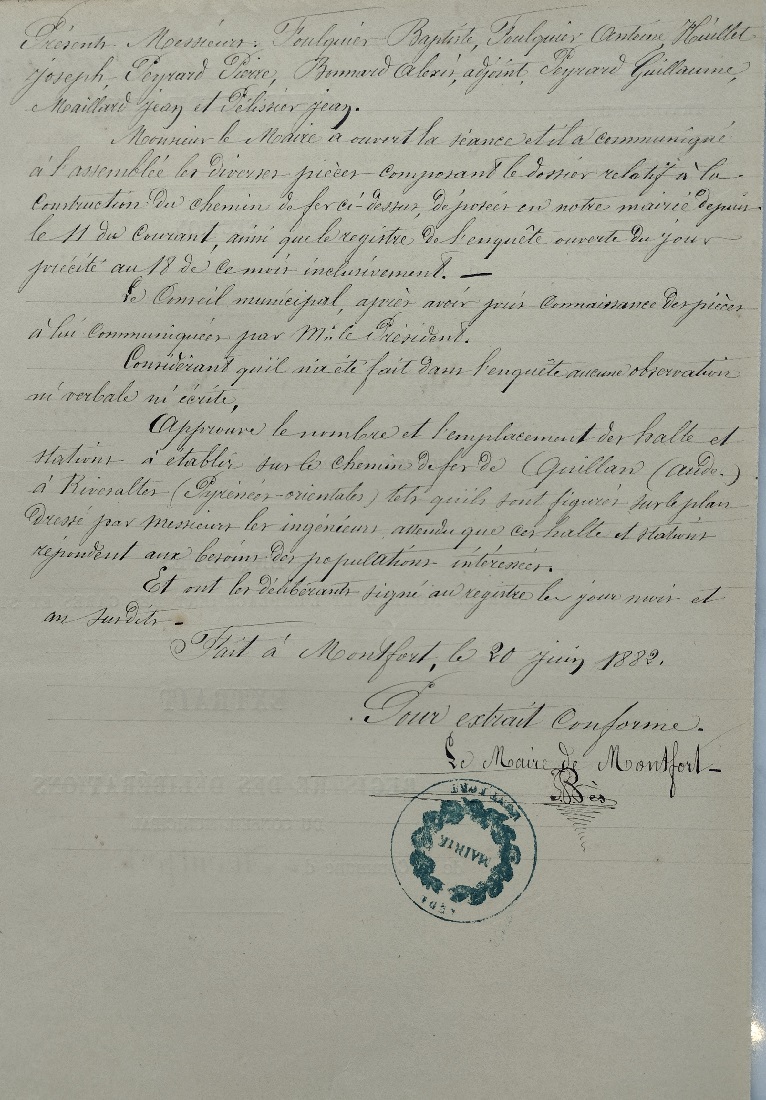 Présents Messieurs: Foulquier Baptiste, Foulquier Antoine, Huillet
Joseph, Peyrard Pierre, Bonnard Alexis, adjoint, Peyrard Guillaume,
Maillard Jean et Pélissier Jean.
Monsieur le Maire a ouvert la séance et il a communiqué
à l'assemblée les diverses pièces composant le dossier relatif à la
construction du chemin de fer ci-dessus, déposées en notre mairie depuis
le 11 du courant, ainsi que le registre de l'enquête ouverte du jour
précité au 18 de ce mois inclusivement. —
Le Conseil municipal, après avoir pris connaissance des pièces
à lui communiquées par Mr. le Président.
Considérant qu'il n'a été fait dans l'enquête aucune observation
ni verbale ni écrite,
Approuve le nombre et l'emplacement des halte et
stations à établir sur le chemin de fer de Quillan (Aude.)
à Rivesaltes (Pyrénées-orientales) tels qu'ils sont figurés sur le plan
dressé par Messieurs les ingénieurs, attendu que ces halte et stations
répondent aux besoins des populations intéressées.
Et ont les délibérants signé au registre les jour mois et
an susdits —
Fait à Montfort, le 20 juin 1882.
Pour extrait conforme.
Le Maire de Montfort —
Bès
MONTFORT
MAIRIE
AUDE